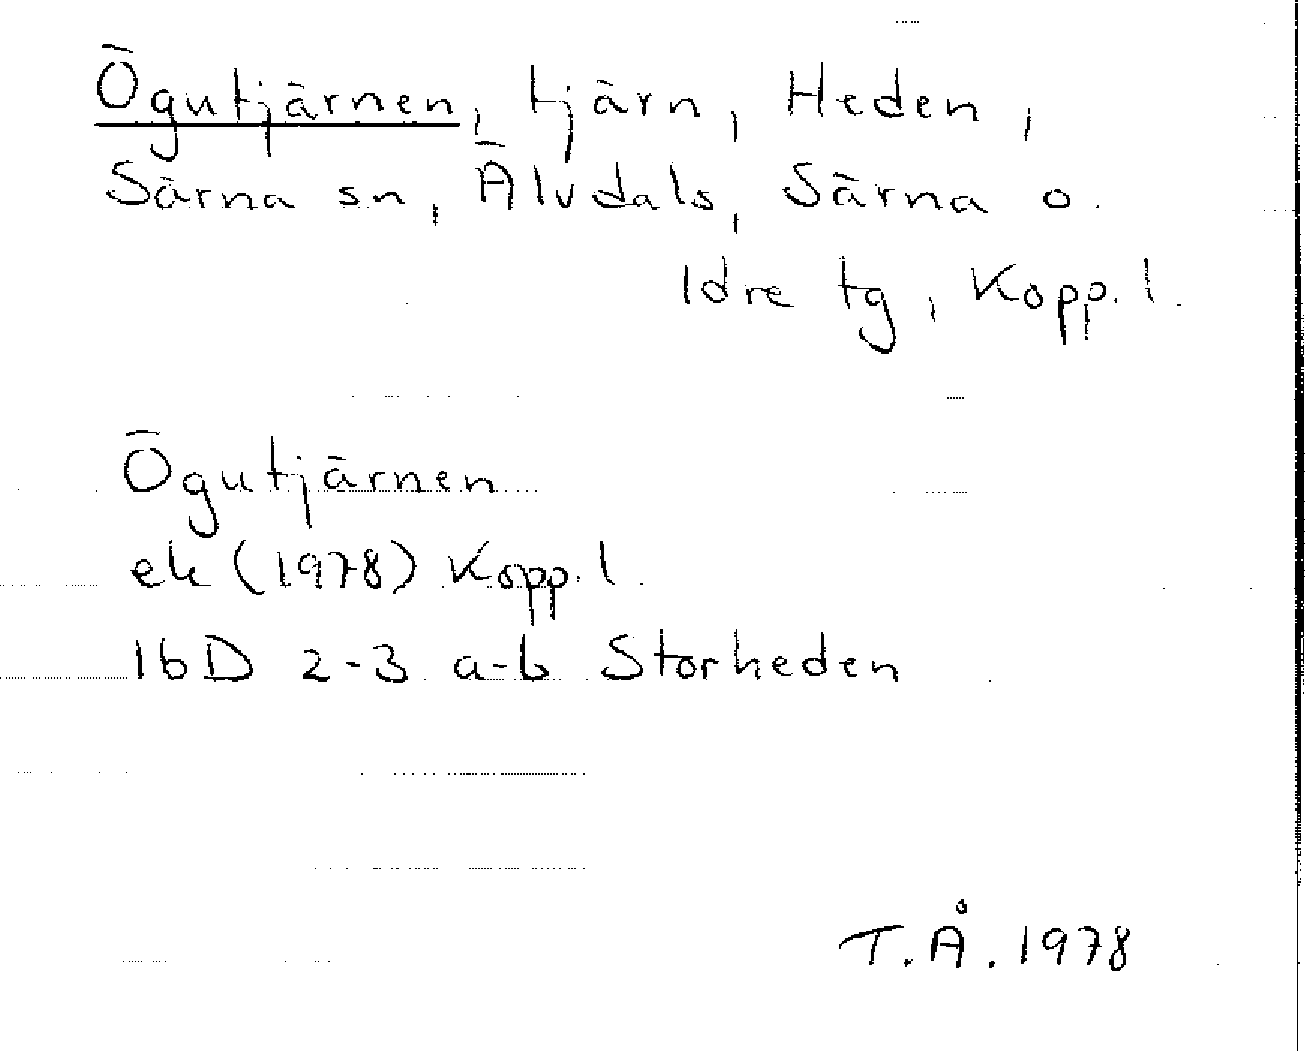 Ögutjärnen, tjärn, Heden,
Särna sn, Älvdals, Särna o.
Idre tg, Kopp. l.
Ögutjärnen
ek (1978) Kopp. l.
16D 2-3 a-b Storheden
T.Å. 1978